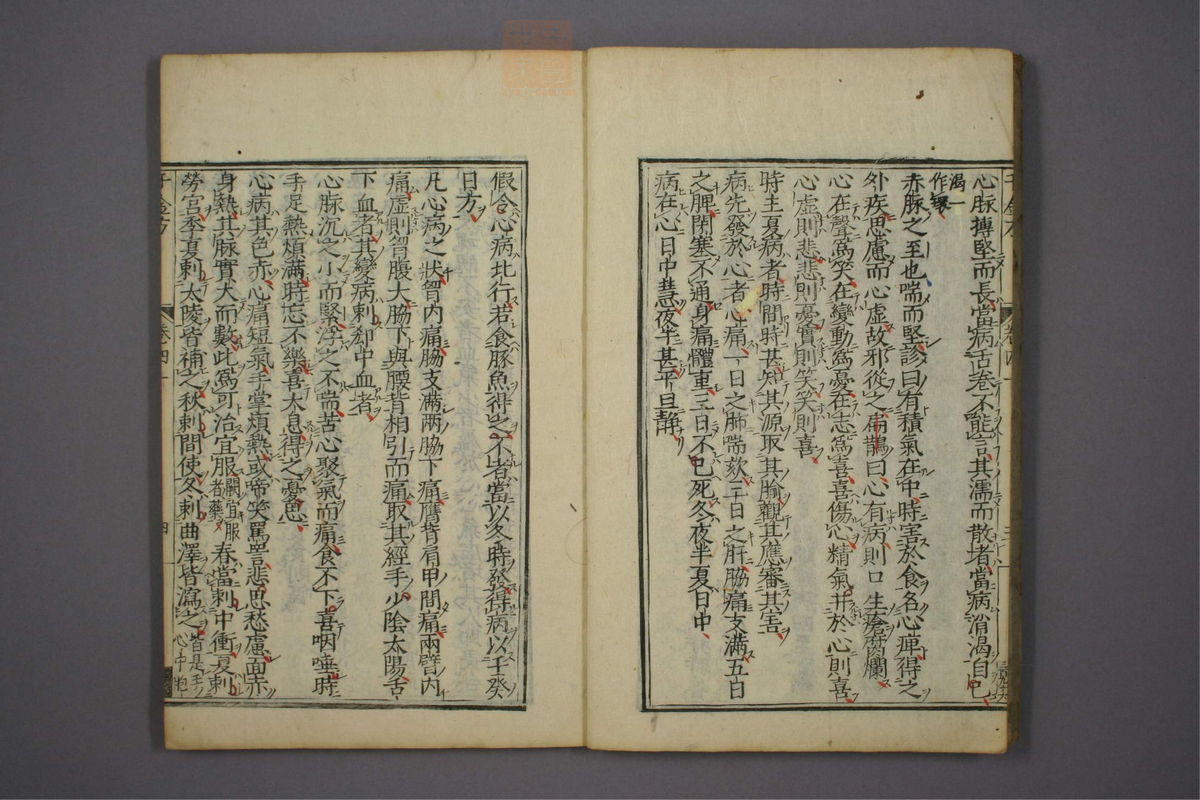 心脉搏堅而長當病舌卷不能言其濡而散者當病消渴自已
渴一
作環
赤脉之至也喘而堅診曰有積氣在中時害於食名心痺得之
外疾思慮而心虛故邪從之扁鵲曰心有病則口生瘡腐爛
心在聲爲笑在變動爲憂在志爲喜喜傷心精氣并於心則喜
心虛則悲悲則憂實則笑笑則喜
時主夏病者時間時甚知其源取其腧觀其應審其害
病先發於心者心痛一日之肺喘欬三日之肝脇痛支滿五日
之脾閉塞不通身痛體重三日不已死冬夜半夏日中
病在心日中慧夜半甚平旦靜
卷四
三
假令心病北行若食豚魚得之不者當以冬時發得病以壬癸
日方
凡心病之狀胷内痛脇支滿兩脇下痛膺背肩甲間痛兩臂内
痛虛則胷腹大脇下與腰背相引而痛取其經手少陰太陽舌
下血者其變病刺郄中血者
心脉沉之小而堅浮之不喘苦心聚氣而痛食不下喜咽唾時
手足熱煩滿時忘不樂喜太息得之憂思
心病其色赤心痛短氣手掌煩熱或啼笑罵詈悲思愁慮面赤
身熱其脉實大而數此爲可治宜服闕宜服者藥春當刺中衝夏刺
勞宮季夏刺太陵皆補之秋刺間使冬刺曲澤皆瀉之皆是手心中胞
千金方
卷四
四